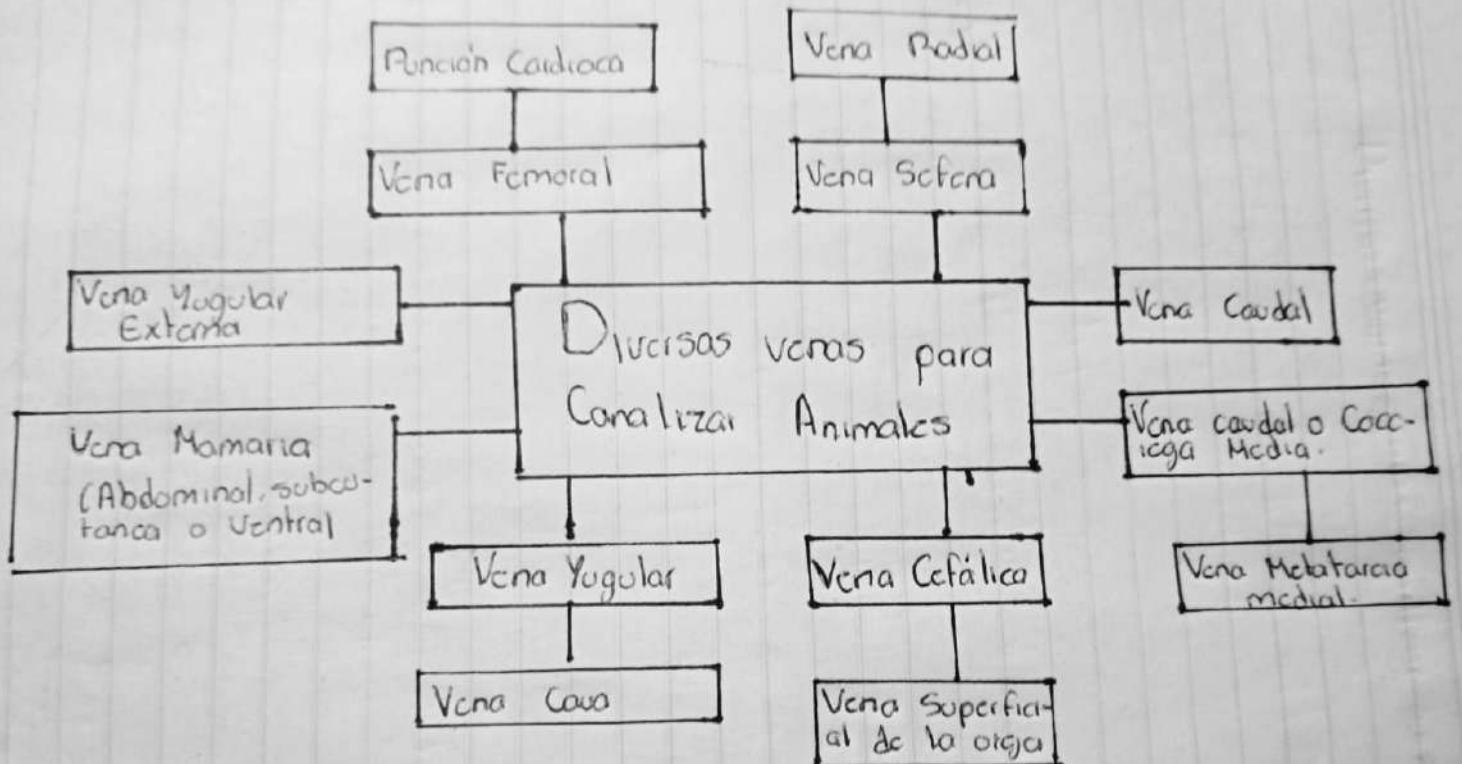 Punción Cardioca
Vena Radial
Vena Femoral
Vena Sefena
Vena Yugular
Externa
Diversas venas para
Canalizar Animales
Vena Caudal
Vena Mamaria
(Abdominal, subcu-
tanea o Ventral
Vena caudal o Cocc-
iega Media.
Vena Yugular
Vena Cefálica
Vena Metatarcia
medial.
Vena Cava
Vena Superfici-
al de la oreja